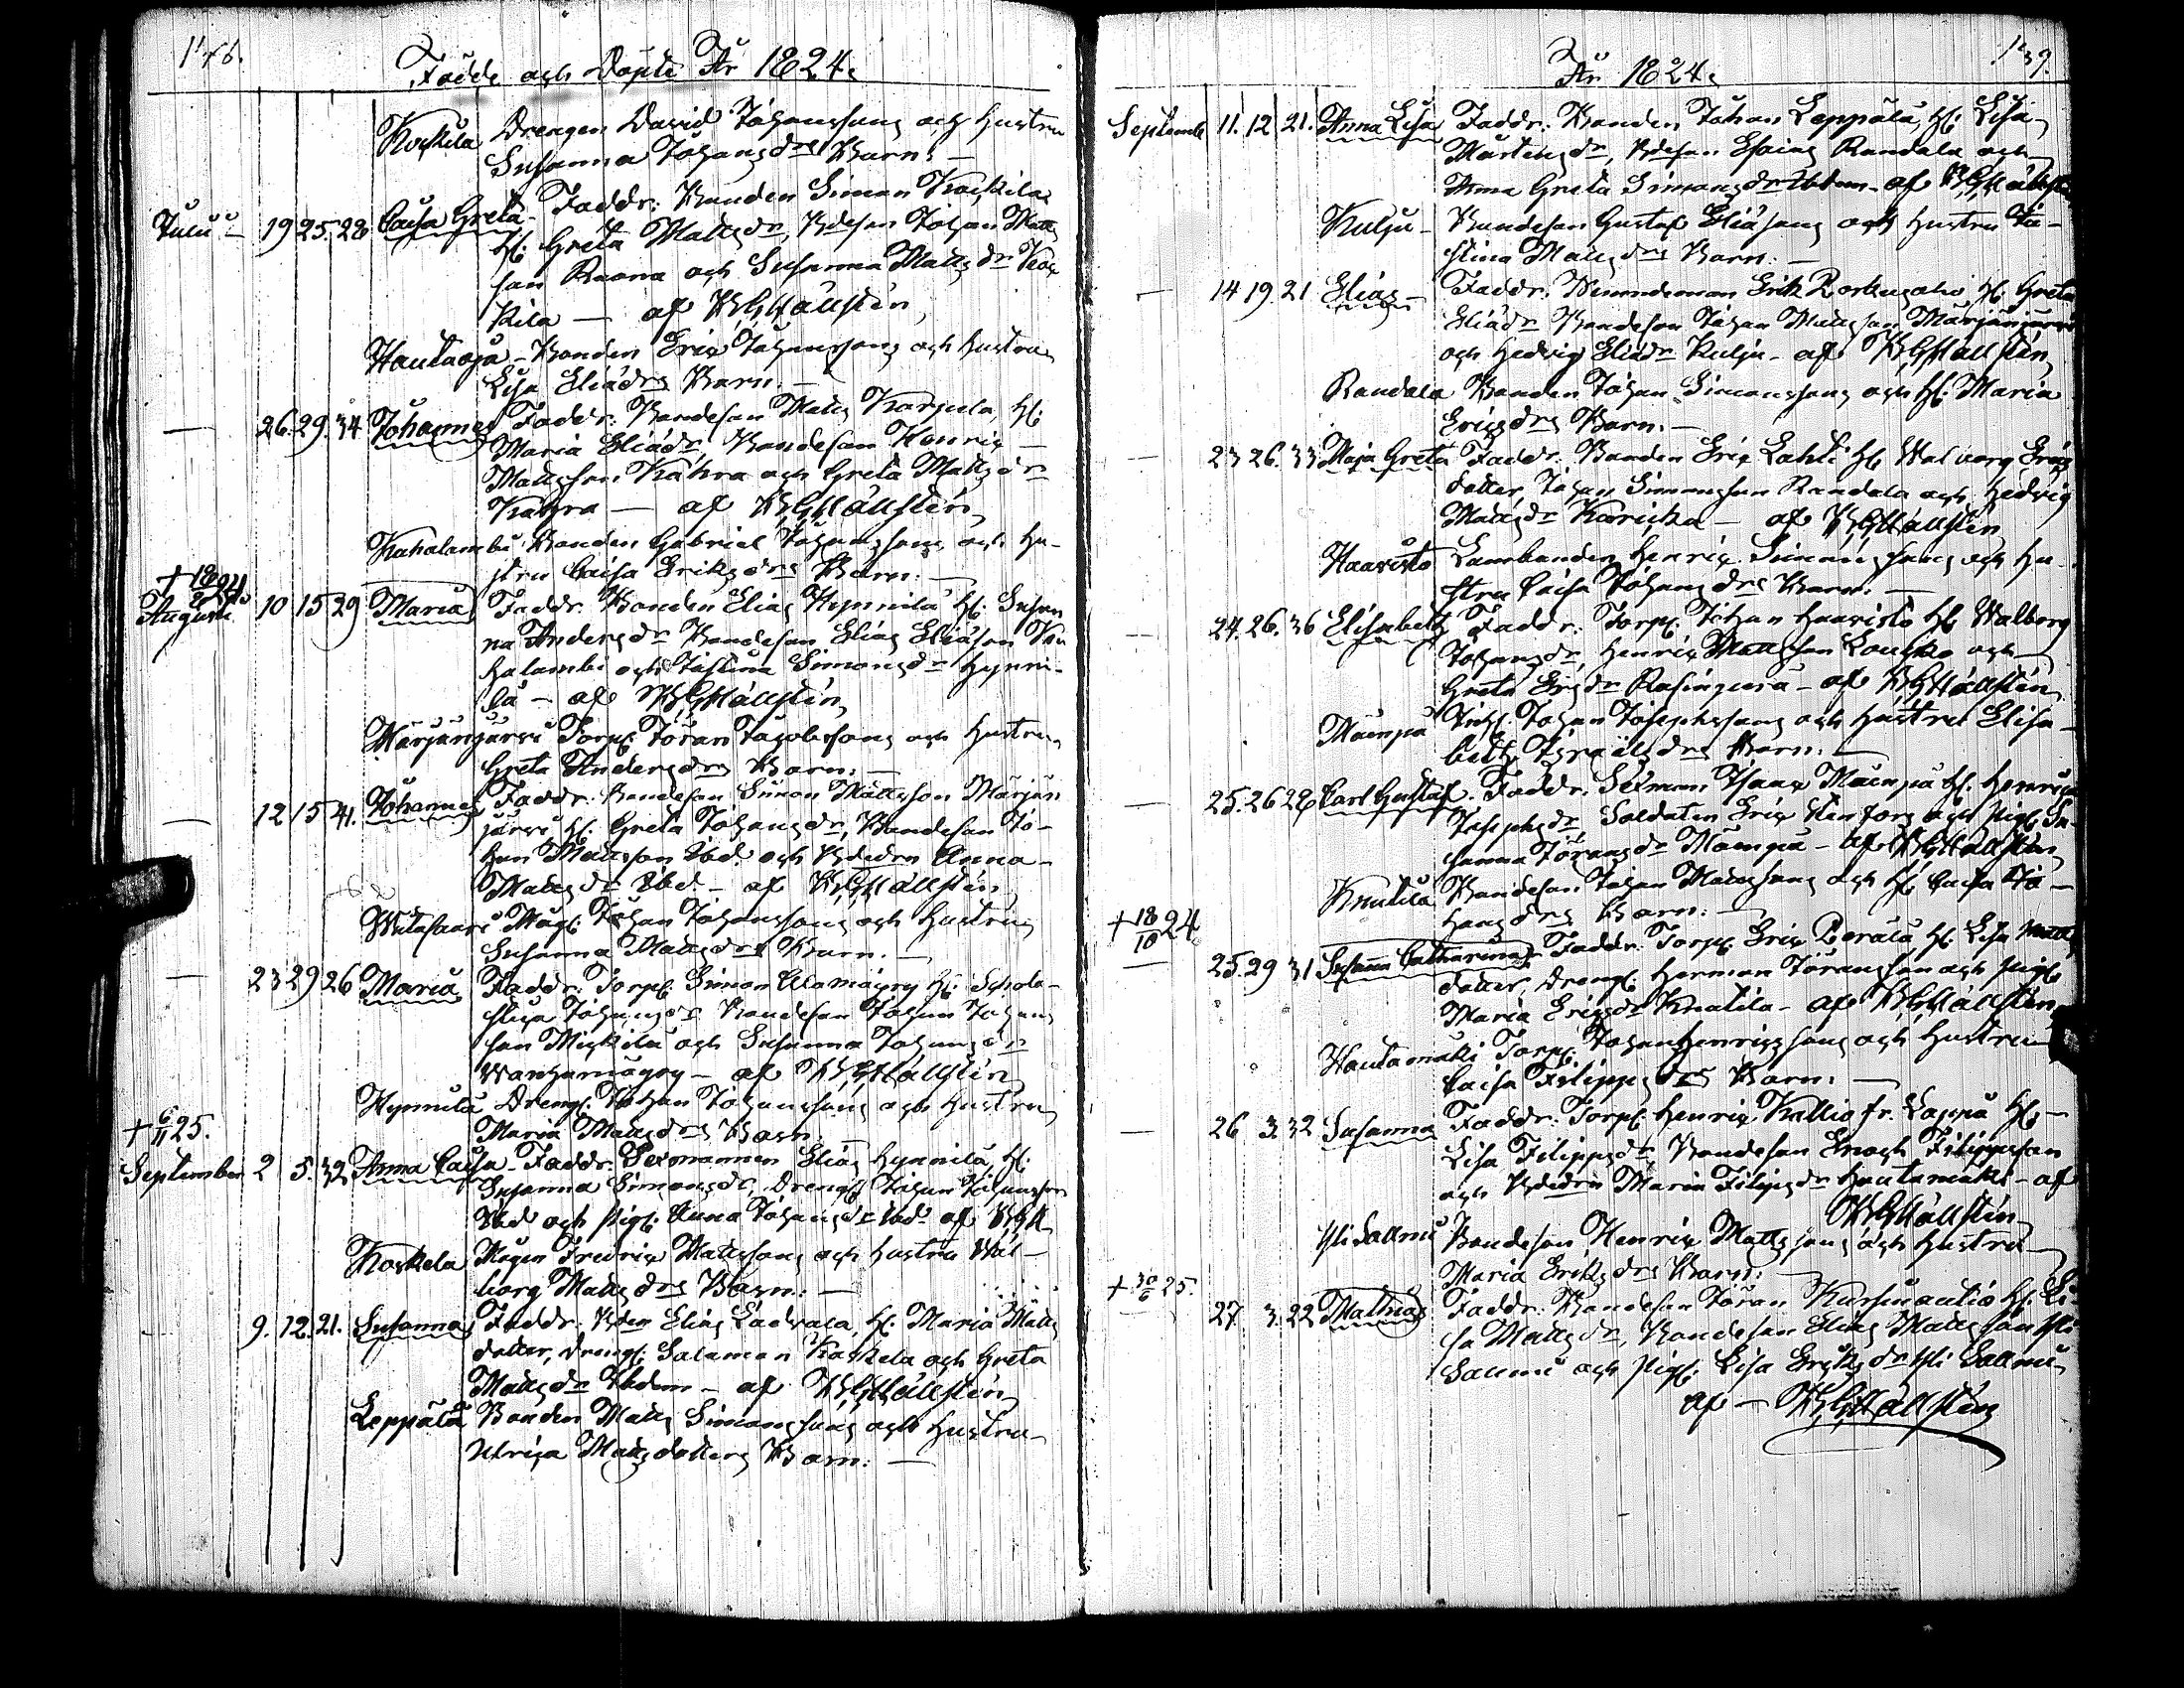 Födde och Döpte År 1824.
Koskila Drengen David Johanssons och Hustru
Susanna Johansdrs Barn. —
Julii — 19 25. 28 Caisa Greta — Faddr: Bonden Simon Koskila
H: Greta Mattsdr, Bdeson Johan Matts
son Raana och Susanna Mattsdr Kos
kila — af BGHällstén
Hautaoja — Bonden Eric Johanssons och Hustru
Lisa Eliædrs Barn. —
— 26. 29. 34 Johannes Faddr: Bondeson Matts Karjula, H:
Maria Eliædr, Bondeson Henric —
Mattsson Kahra och Greta Mattsdr
Kahra — af BGHällstén
Kahalambi Bonden Gabriel Johanssons och Hu-
stru Caisa Eriksdrs Barn. —
Augusti 10 15 29 Maria Faddr. Bonden Elias Hynnilä H: Susan
na Andersdr Bondeson Elias Eliæson Ka
halambi och Justina Simonsdr Hynni-
lä — af BGHällstén
Märjänjärvi Torp: Jöran Jacobssons och Hustru
Greta Andersdrs Barn. —
— 12 15 41. Johannes Faddr. Bondeson Simon Mattsson Märjän
järvi H: Greta Johansdr, Bondeson Jo-
han Mattsson Ibd. och Bdedrn Anna —
Mattsdr Ibd. — af BGHällstén
Johan Johanssons och Hustru
Susanna Mattsdrs Barn. —
— 23 29 26 Maria Faddr: Torp: Simon Alamägry H: Schola-
stica Johansdr Bondeson Johan Johans
son Miskilä och Susanna Johansdr
— af BGHällstén
Hynnilä Dreng: Johan Johanssons och Hustru
Maria Mattsdrs Barn
+ 6/11 25.
September 2 5. 32 Anna Caisa — Faddr. Sexmannen Elias Hynnilä, H:
Susanna Simonsdr, Dreng: Johan Johansson
Ibd och Pig: Anna Johansdr Ibd af BGH
Koskela Mågen Fredric Mattssons och Hustru Wal-
borg Mattsdrs Barn. —
9. 12. 21. Susanna Faddr. Bden Elias H: Maria Matts
dotter, Dreng: Salomon Koskela och Greta
Mattsdr Ibdem — af BGHällstén
Leppälä Bonden Matts Simonssons och Hustru
Ulrica Mattsdotters Barn. —
År 1824. 139.
Septemb 11. 12 21. Anna Lisa Faddr: Bonden Johan Leppälä, H: Lisa
Mårtensdr, Bdeson Esaias Randala och
Anna Greta Simonsdr Ibdem — af BGHällstén
Kulju — Bondeson Gustaf Eliæsons och Hustru Ju-
stina Mattsdrs Barn. —
— 14 19. 21 Elias — Faddr: Nämndeman Erik H: Greta
Eliædr Bondeson Johan Mattsson Märjänjärvi
och Hedvig Eliædr Kulju — af BGHällstén
Randala Bonden Johan Simonssons och H: Maria
Ericsdrs Barn. —
— 23 26. 33 Maja Greta Faddr. Bonden Eric Lahti H: Walborg Erics
dotter, Johan Simonsson Randala och Hedvig
Mattsdr Karicka — af BGHällstén
Haavisto Landbonden Henric Simonssons och Hu-
stru Caisa Johansdrs Barn. —
— 24. 26. 36 Elisabeth Faddr: Torp: Johan Haavisto H: Walborg
Johansdr, Henric Mattsson Lousko och —
Greta Ericsdr — af BGHällstén
Mäenpä Inh: Johan Josephssons och Hustru Elisa-
beth Israelsdrs Barn. —
— 25. 26 28 Carl Gustaf. Faddr. Sexman Isaac Mäenpä H: Henrica
Josephsdr Soldaten Eric Stenfors och Pig: Su-
sanna Jöransdr Mäenpä — af BGHällstén
Knutila Bondeson Johan Mattssons och H: Caisa Jo-
hansdrs Barn. —
+ 18/10 24
— 25. 29 31 Susanna Catharina Faddr. Torp: Eric Perälä H: Lisa Matts
dotter, Dreng: Herman Jöransson och Pig:
Maria Ericsdr Knutila — af BGHällstén
Hautamäki Torp: Johan Henricssons och Hustru
Caisa Filippsdrs Barn. —
— 26 3. 32 Susanna Faddr: Torp: Henric Kallio fr. Lappå H: —
Lisa Filippsdr, Bondeson Enoch Filippsson
och Bdedrn Maria Filipsdr Hautamäki — af
BGHällstén
Yli Sallmi Bondeson Henric Mattssons och Hustru —
Maria Eriksdrs Barn. —
+ 30/6 25.
27 3. 22 Mathias Faddr. Bondeson Jöran H: Li
sa Mattsdr, Bondeson Elias Mattsson Yli
Sallmi och Pig: Lisa Eriksdr Yli Sallmi
af — BGHällstén